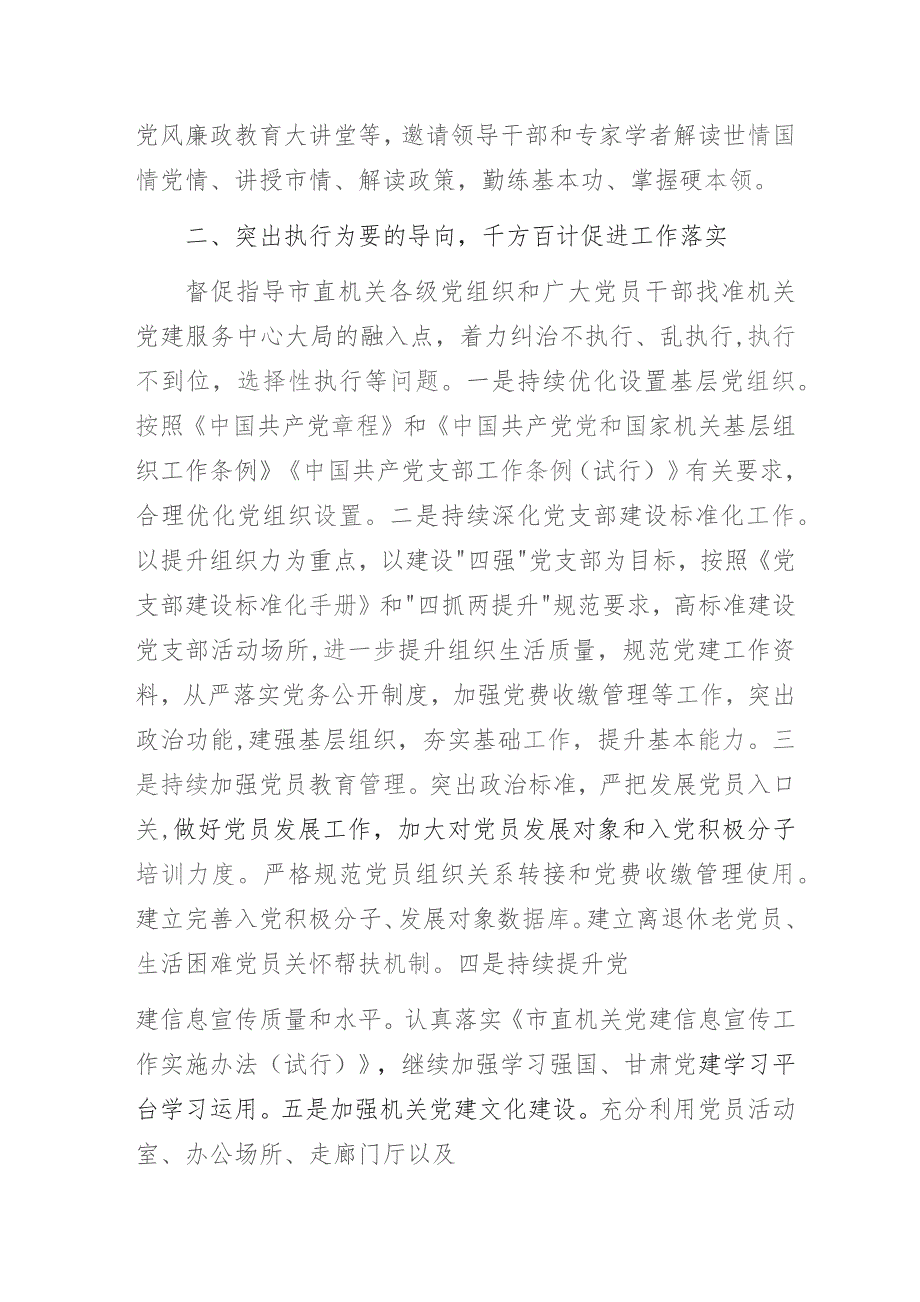 党风廉政教育大讲堂等，邀请领导干部和专家学者解读世情国
情党情、讲授市情、解读政策，勤练基本功、掌握硬本领。
二、突出执行为要的导向，千方百计促进工作落实
督促指导市直机关各级党组织和广大党员干部找准机关
党建服务中心大局的融入点，着力纠治不执行、乱执行,执行
不到位，选择性执行等问题。一是持续优化设置基层党组织。
按照《中国共产党章程》和《中国共产党党和国家机关基层组
织工作条例》《中国共产党支部工作条例（试行）》有关要求，
合理优化党组织设置。二是持续深化党支部建设标准化工作。
以提升组织力为重点，以建设"四强"党支部为目标，按照《党
支部建设标准化手册》和"四抓两提升"规范要求，高标准建设
党支部活动场所,进一步提升组织生活质量，规范党建工作资
料，从严落实党务公开制度，加强党费收缴管理等工作，突出
政治功能,建强基层组织，夯实基础工作，提升基本能力。三
是持续加强党员教育管理。突出政治标准，严把发展党员入口
关,做好党员发展工作，加大对党员发展对象和入党积极分子
培训力度。严格规范党员组织关系转接和党费收缴管理使用。
建立完善入党积极分子、发展对象数据库。建立离退休老党员、
生活困难党员关怀帮扶机制。四是持续提升党
建信息宣传质量和水平。认真落实《市直机关党建信息宣传工
作实施办法（试行）》，继续加强学习强国、甘肃党建学习平
台学习运用。五是加强机关党建文化建设。充分利用党员活动
室、办公场所、走廊门厅以及